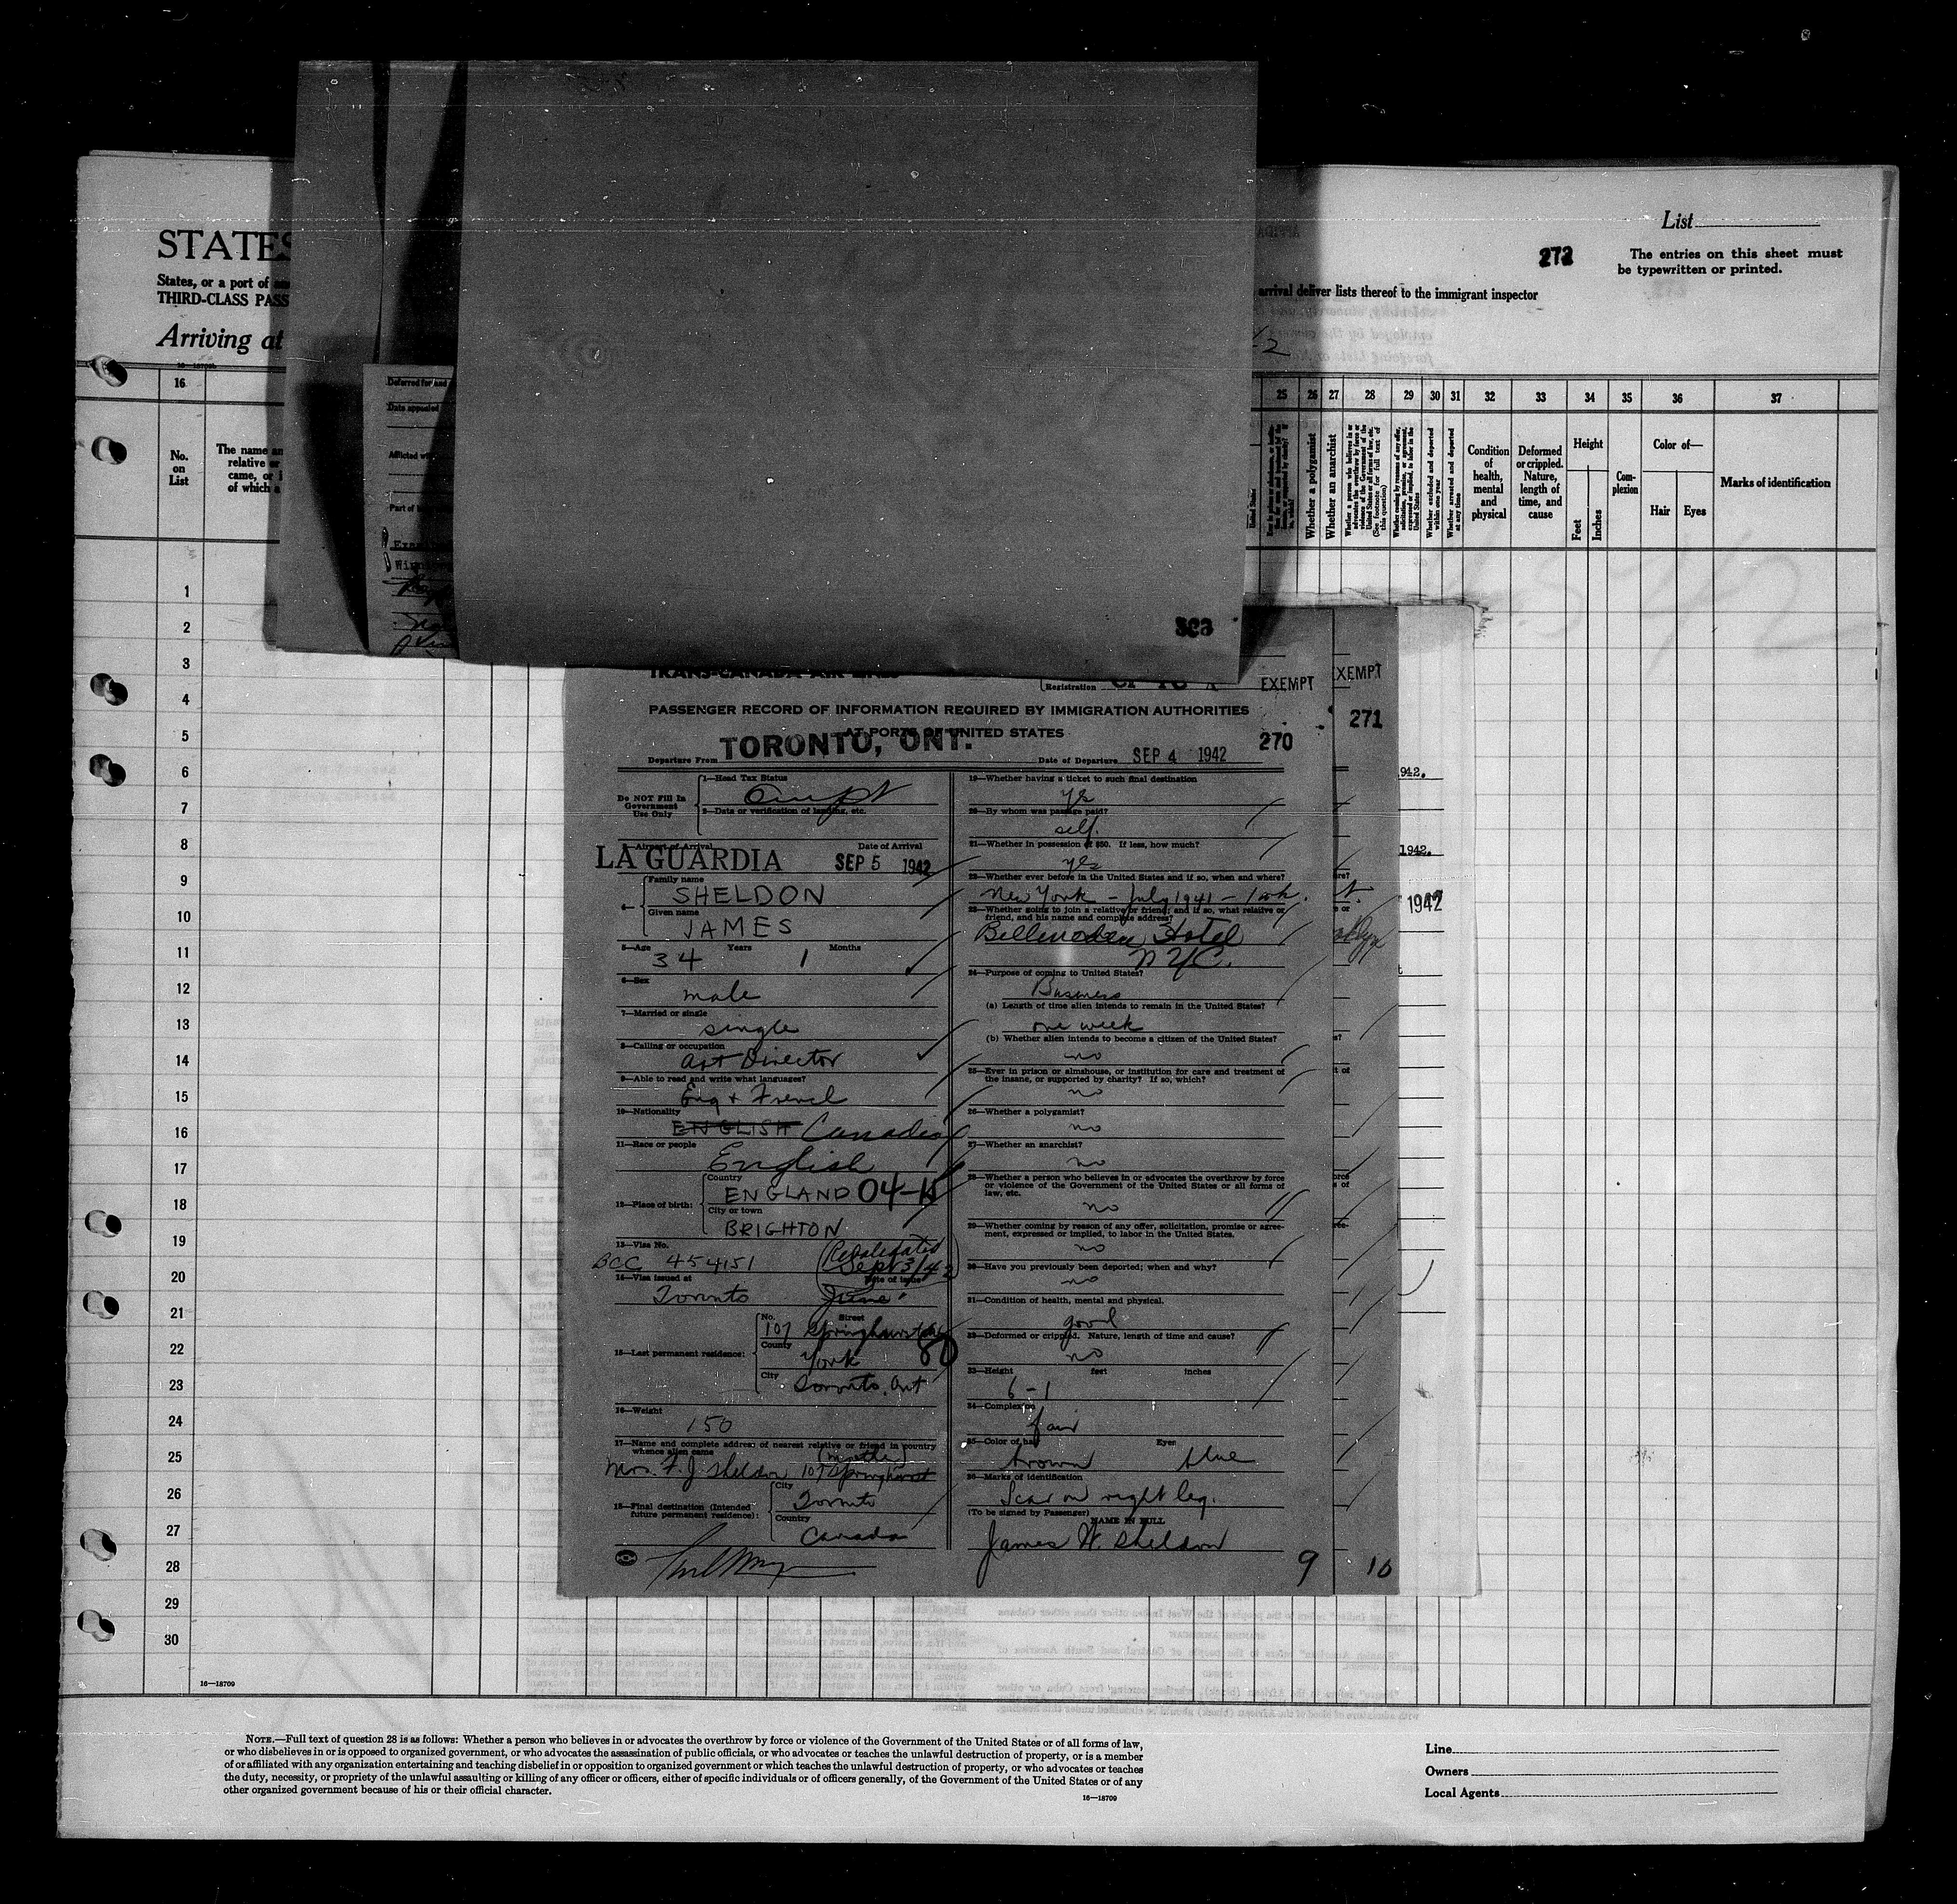 List
272
The entries on this sheet must
be typewritten or printed.
STATES
States, or a port of
THIRD-CLASS PASS
arrival deliver lists thereof to the immigrant inspector
Arriving at
16
25 26 27 28 29 30 31 32 33 34 35 36 37
No.
on
List
The name an
relative or
came, or i
of which a
Whether a polygamist
Whether an anarchist
Whether a person who believes in or
advocates the overthrow by force or
violence of the Government of the
United States or all forms of law, etc.
(See footnote for full text of
this question)
Whether coming by reasons of any offer,
solicitation, promise, or agreement,
expressed or implied, to labor in the
United States
Whether excluded and deported
within one year
Whether arrested and deported
at any time
Condition
of
health,
mental
and
physical
Deformed
or crippled.
Nature,
length of
time, and
cause
Height
Feet
Inches
Com-
plexion
Color of—
Hair
Eyes
Marks of identification
Deferred for and
Date appealed
Afflicted wi
Part of
1
2
3
4
5
6
7
8
9
10
11
12
13
14
15
16
17
18
19
20
21
22
23
24
25
26
27
28
29
30
16—18709
TRANS-CANADA AIR LINES
Registration
EXEMPT
EXEMPT
PASSENGER RECORD OF INFORMATION REQUIRED BY IMMIGRATION AUTHORITIES
AT PORTS OF UNITED STATES
270
271
Departure From TORONTO, ONT.
Date of Departure SEP 4 1942
Do NOT Fill In
Government
Use Only
1—Head Tax Status
2—Data or verification of landing, etc.
3—Airport of Arrival Date of Arrival
LA GUARDIA SEP 5 1942
4— Family name
SHELDON
Given name
JAMES
5—Age Years Months
34 1
6—Sex
male
7—Married or single
single
8—Calling or occupation
Art Director
9—Able to read and write what languages?
Eng + French
10—Nationality
ENGLISH Canadian
11—Race or people
English
12—Place of birth: Country
ENGLAND 04-
City or town
BRIGHTON
13—Visa No.
BCC 454151 (Revalidated
Sept 3/42)
14—Visa issued at Date of issue
Toronto June
15—Last permanent residence: No. Street
107 Springhurst Ave
County
York 80
City
Toronto, Ont
16—Weight
150
17—Name and complete address of nearest relative or friend in country
whence alien came
(mother)
Mrs. F. J. Sheldon 107 Springhurst
18—Final destination (Intended
future permanent residence): City
Toronto
Country
Canada
19—Whether having a ticket to such final destination
yes
20—By whom was passage paid?
self.
21—Whether in possession of $50. If less, how much?
yes
22—Whether ever before in the United States and if so, when and where?
New York - July 1941 - 1 wk.
23—Whether going to join a relative or friend; and if so, what relative or
friend, and his name and complete address?
Hotel
N.Y.C.
24—Purpose of coming to United States?
Business
(a) Length of time alien intends to remain in the United States?
one week
(b) Whether alien intends to become a citizen of the United States?
no
25—Ever in prison or almshouse, or institution for care and treatment of
the insane, or supported by charity? If so, which?
no
26—Whether a polygamist?
no
27—Whether an anarchist?
no
28—Whether a person who believes in or advocates the overthrow by force
or violence of the Government of the United States or all forms of
law, etc.
no
29—Whether coming by reason of any offer, solicitation, promise or agree-
ment, expressed or implied, to labor in the United States.
no
30—Have you previously been deported; when and why?
no
31—Condition of health, mental and physical.
good
32—Deformed or crippled. Nature, length of time and cause?
no
33—Height feet inches
6-1
34—Complexion
fair
35—Color of hair Eyes
brown blue
36—Marks of identification
Scar on right leg.
(To be signed by Passenger)
NAME IN FULL
James W. Sheldon
9
10
942.
1942.
1942
NOTE.—Full text of question 28 is as follows: Whether a person who believes in or advocates the overthrow by force or violence of the Government of the United States or of all forms of law,
or who disbelieves in or is opposed to organized government, or who advocates the assassination of public officials, or who advocates or teaches the unlawful destruction of property, or is a member
of or affiliated with any organization entertaining and teaching disbelief in or opposition to organized government or which teaches the unlawful destruction of property, or who advocates or teaches
the duty, necessity, or propriety of the unlawful assaulting or killing of any officer or officers, either of specific individuals or of officers generally, of the Government of the United States or of any
other organized government because of his or their official character.
16—18709
Line
Owners
Local Agents